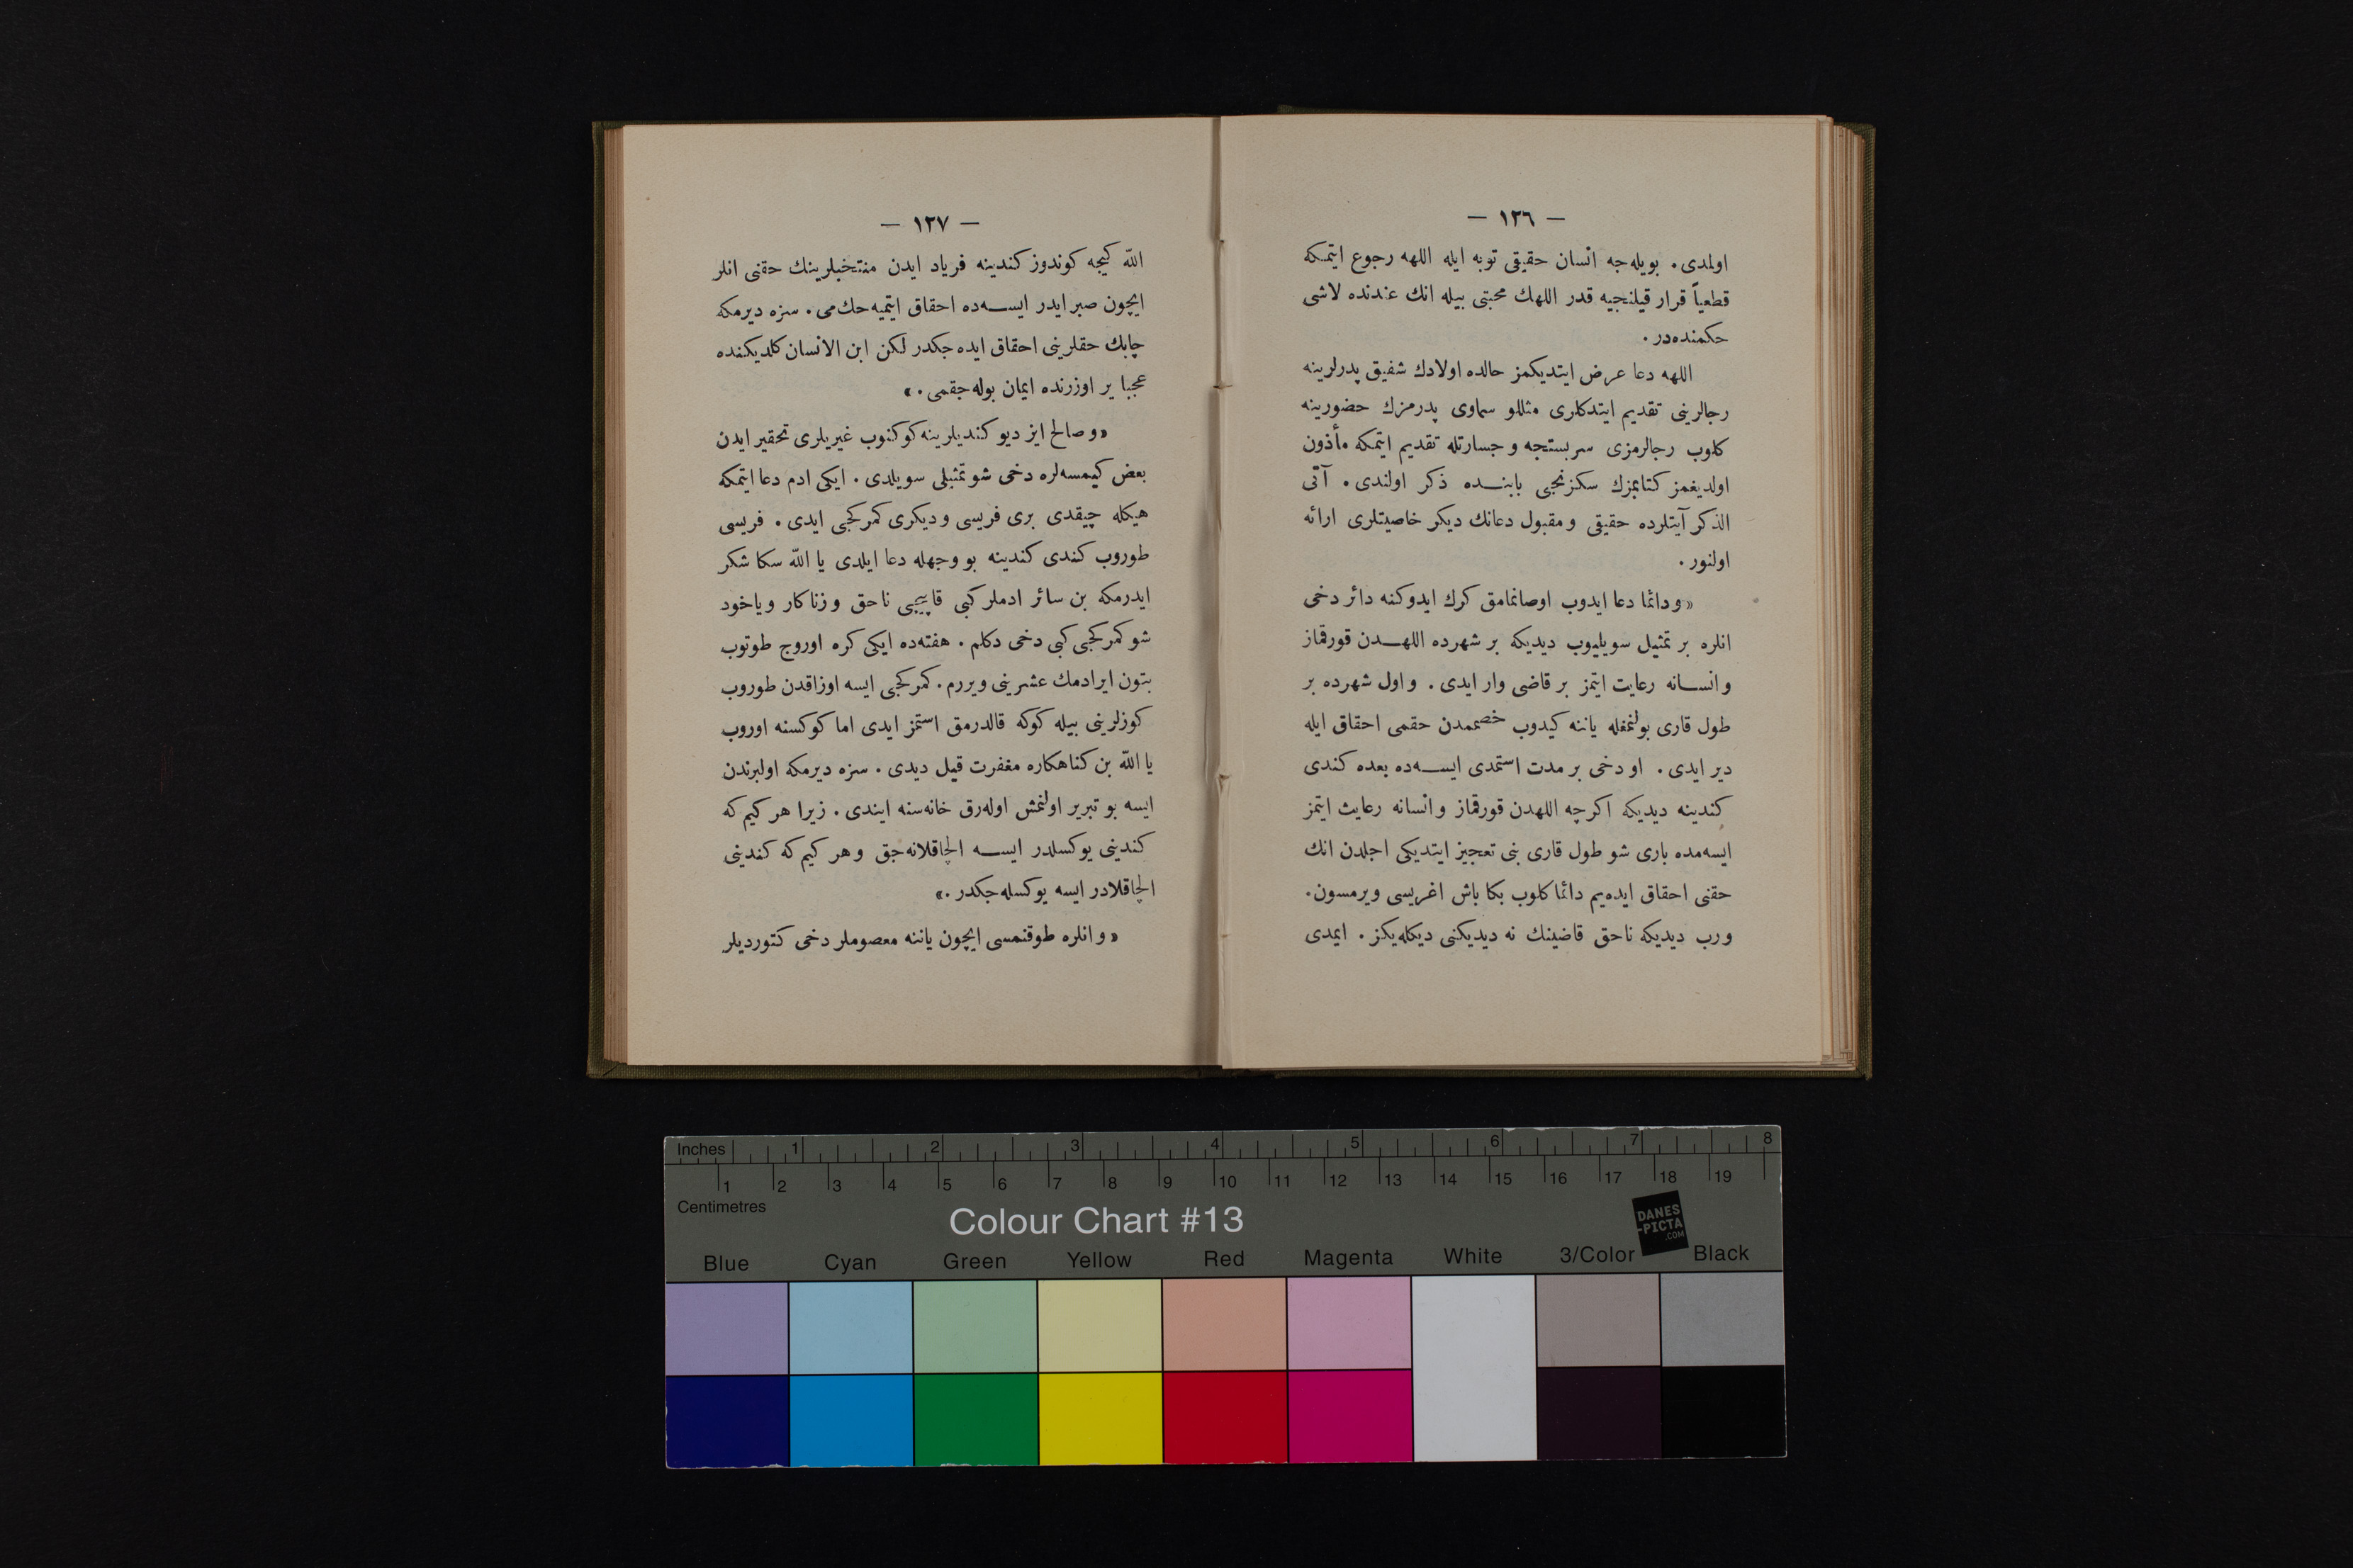 — ١٣٦ —
اولمدی. بویله‌جه انسان حقیقی توبه ایله اللهه رجوع ایتمکه
قطعیاً قرار قیلنجیه قدر اللهك محبتی بیله انك عندنده لاشی
حکمنده‌در.
اللهه دعا عرض ایتدیکمز حالده اولادك شفیق پدرلرینه
رجالرینی تقدیم ایتدکلری مثللو سماوی پدرمزك حضورینه
کلوب رجالرمزی سربستجه و جسارتله تقدیم ایتمکه مأذون
اولدیغمز کتابمزك سکزنجی بابنده ذکر اولندی. آتی
الذکر آیتلرده حقیقی و مقبول دعانك دیکر خاصیتلری ارائه
اولنور.
«ودائما دعا ایدوب اوصانمامق کرك ایدوکنه دائر دخی
انلره بر تمثیل سویلیوب دیدیکه بر شهرده اللهدن قورقماز
وانسانه رعایت ایتمز بر قاضی وار ایدی. واول شهرده بر
طول قاری بولنمغله یاننه کیدوب خصممدن حقمی احقاق ایله
دیر ایدی. او دخی بر مدت استمدی ایسه‌ده بعده کندی
کندینه دیدیکه اکرچه اللهدن قورقماز وانسانه رعایت ایتمز
ایسه‌مده باری شو طول قاری بنی تعجیز ایتدیکی اجلدن انك
حقنی احقاق ایده‌یم دائما کلوب بکا باش اغریسی ویرمسون.
ورب دیدیکه ناحق قاضینك نه دیدیکنی دیکله‌یکز. ایمدی
— ١٣٧ —
اللّه کیجه کوندوز کندینه فریاد ایدن منتخبلرینك حقنی انلر
ایچون صبر ایدر ایسه‌ده احقاق ایتمیه‌جك‌می. سزه دیرمکه
چابك حقلرینی احقاق ایده‌جکدر لکن ابن الانسان کلدیکنده
عجبا یر اوزرنده ایمان بوله‌جقمی.»
«وصالح ایز دیو کندیلرینه کوکنوب غیریلری تحقیر ایدن
بعض کیمسه‌لره دخی شو تمثیلی سویلدی. ایکی ادم دعا ایتمکه
هیکله چیقدی بری فریسی ودیکری کمرکجی ایدی. فریسی
طوروب کندی کندینه بو وجهله دعا ایلدی یا اللّه سکا شکر
ایدرمکه بن سائر ادملر کبی قاپیجی ناحق وزناکار ویاخود
شو کمرکجی کبی دخی دکلم. هفته‌ده ایکی کره اوروج طوتوب
بتون ایرادمك عشرینی ویررم. کمرکجی ایسه اوزاقدن طوروب
کوزلرینی بیله کوکه قالدرمق استمز ایدی اما کوکسنه اوروب
یا اللّه بن کناهکاره مغفرت قیل دیدی. سزه دیرمکه اولبرندن
ایسه بو تبریر اولنمش اوله‌رق خانه‌سنه ایندی. زیرا هر کیم که
کندینی یوکسلدر ایسه الچاقلانه‌جق وهر کیم که کندینی
الچاقلادر ایسه یوکسله‌جکدر.»
«وانلره طوقنمسی ایچون یاننه معصوملر دخی کتوردیلر
Inches 1 2 3 4 5 6 7 8
1 2 3 4 5 6 7 8 9 10 11 12 13 14 15 16 17 18 19
Centimetres
Colour Chart #13
DANES
-PICTA
.COM
Blue Cyan Green Yellow Red Magenta White 3/Color Black